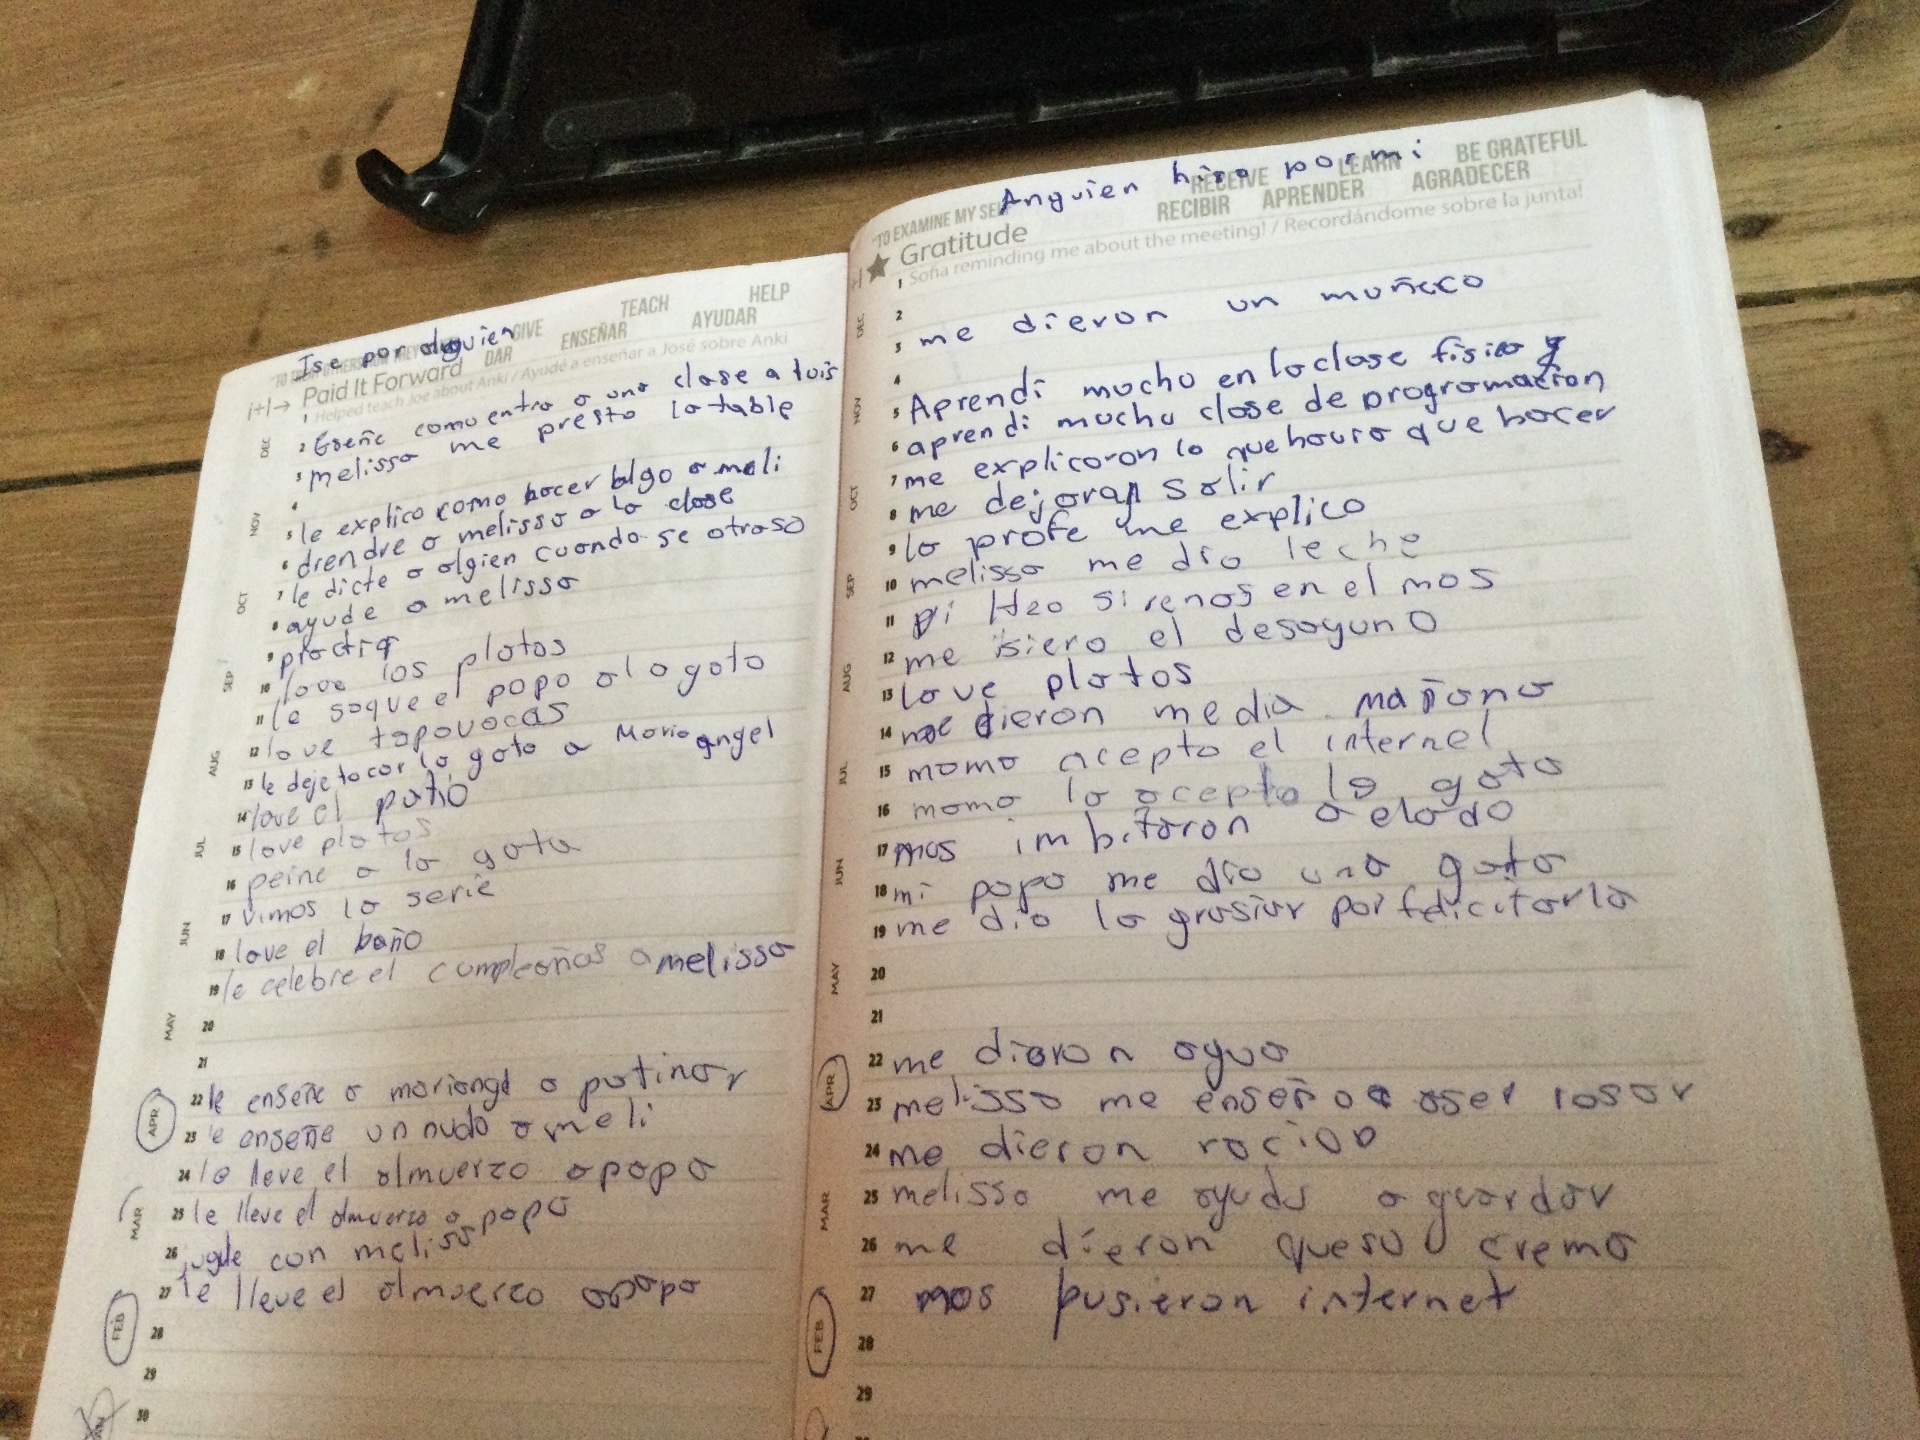 Ise por alguien
GIVE TEACH HELP
DAR ENSEÑAR AYUDAR
i+1→ Paid It Forward
Helped teach Joe about Anki / Ayudé a enseñar a José sobre Anki
1
2 Eseñe como entra a una clase a luis
3 melissa me presto la table
4
5 le explico como hacer algo a meli
6 a melissa a la clase
7 le dicte a algien cuando se atraso
8 ayude a melissa
9
10 lave los platos
11 le saque el popo a la gata
12 lave
13 le deje tocar la gata a Mariangel
14 lave el patio
15 lave platos
16 peine a la gata
17 vimos la serie
18 lave el baño
19 le celebre el cumpleañas a melissa
20
21
22 le enseñe a mariangel a patinar
23 le enseñe un nudo a meli
24 le lleve el almuerzo a papa
25 le lleve el almuerzo a papa
26 jugue con melissa
27 le lleve el almuerzo a papa
28
29
30
DEC
NOV
OCT
SEP
AUG
JUL
JUN
MAY
APR
MAR
FEB
JAN
Anguien hizo por mi
TO EXAMINE MY SELF
RECEIVE LEARN BE GRATEFUL
RECIBIR APRENDER AGRADECER
Gratitude
Sofia reminding me about the meeting! / Recordándome sobre la junta!
1
2
3 me dieron un muñeco
4
5 Aprendi mucho en la clase fisica y
6 aprendi mucho clase de programacion
7 me explicaron lo que que hacer
8 me dejaran salir
9 la profe me explico
10 melissa me dio leche
11 sirenas en el mas
12 me isiero el desayuno
13 lave platos
14 me dieron media mañana
15 mama acepto el internel
16 mama la acepto la gata
17 mas imbitaron a elado
18 mi papa me dio una gata
19 me dio la grasiar por felicitarla
20
21
22 me dieron agua
23 melissa me enseño
24 me dieron
25 melissa me ayuda a guardar
26 me dieron queso crema
27 nos pusieron internet
28
29
DEC
NOV
OCT
SEP
AUG
JUL
JUN
MAY
APR
MAR
FEB